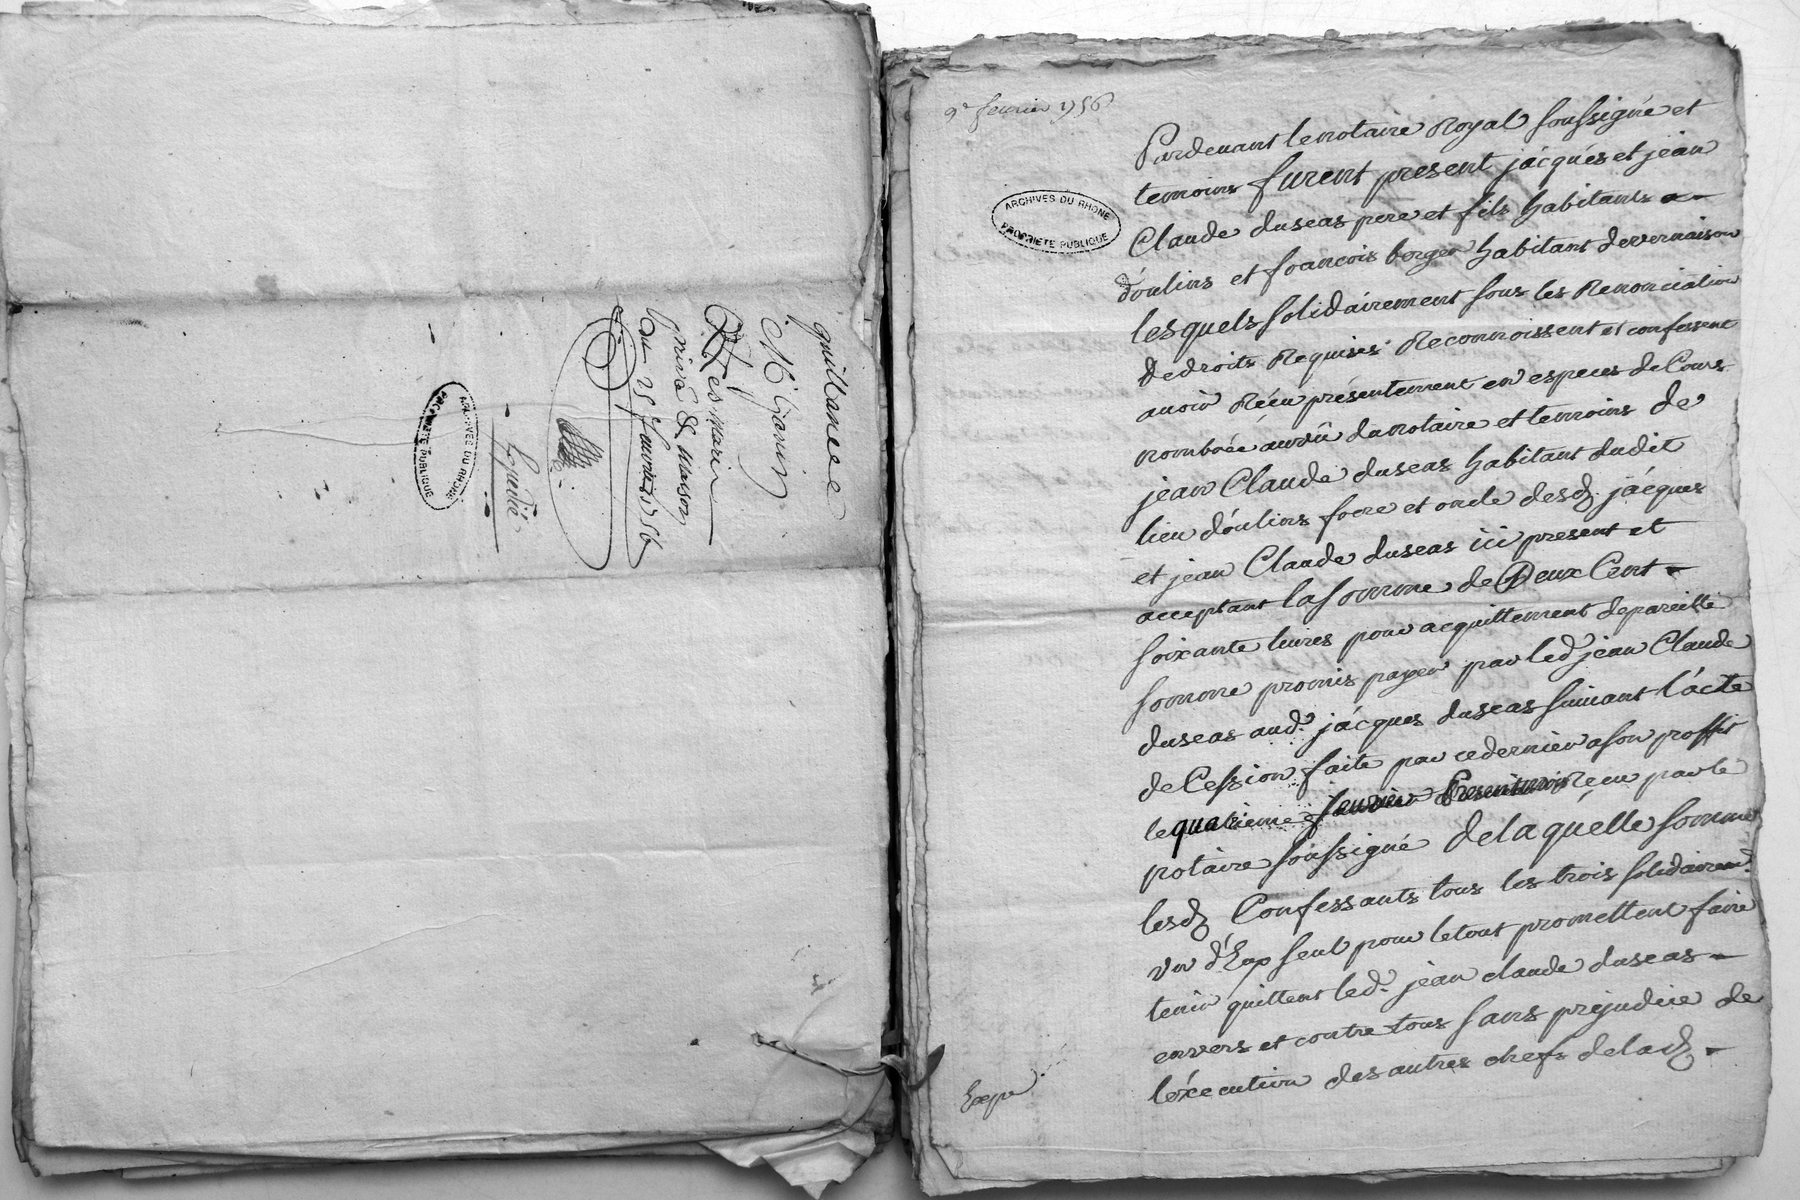 quittance
Mr Garin
Desmarin
privé & maison
Du 25 Janvier 1756
Expedié
ARCHIVES DU RHONE
PROPRIETE PUBLIQUE
9e fevrier 1756
ARCHIVES DU RHONE
PROPRIETE PUBLIQUE
Pardevant le notaire Royal soussigné et
temoins furent present jacques et jean
Claude duseas pere et fils habitants
d'oulins et francois berger habitant devernaison
lesquels solidairement sous les Renonciation
de droits Requises Reconnoissent et confessent
avoir Réeu présentement en especes de Cours
nombrée au vû du notaire et temoins de
jean Claude duseas habitant dudit
lieu d'oulins frere et oncle desd. jácques
et jean Claude duseas ici present et
acceptant la somme de Deux Cent
soixante livres pour acquittement de pareille
somme promis payer par led jean Claude
duseas aud. jácques duseas suivant l'ácte
de Cession faite par ce dernier a son proffit
le quatrieme fevrier present mois Receu par le
notaire soussigné de laquélle somme
lesd Confessants tous les trois solidairemt.
un d'Eux seul pour le tout promettent faire
tenir quittent led. jean claude duseas
envers et contre tous sans prejudice de
l'exécution des autres chefs de lad
Exp